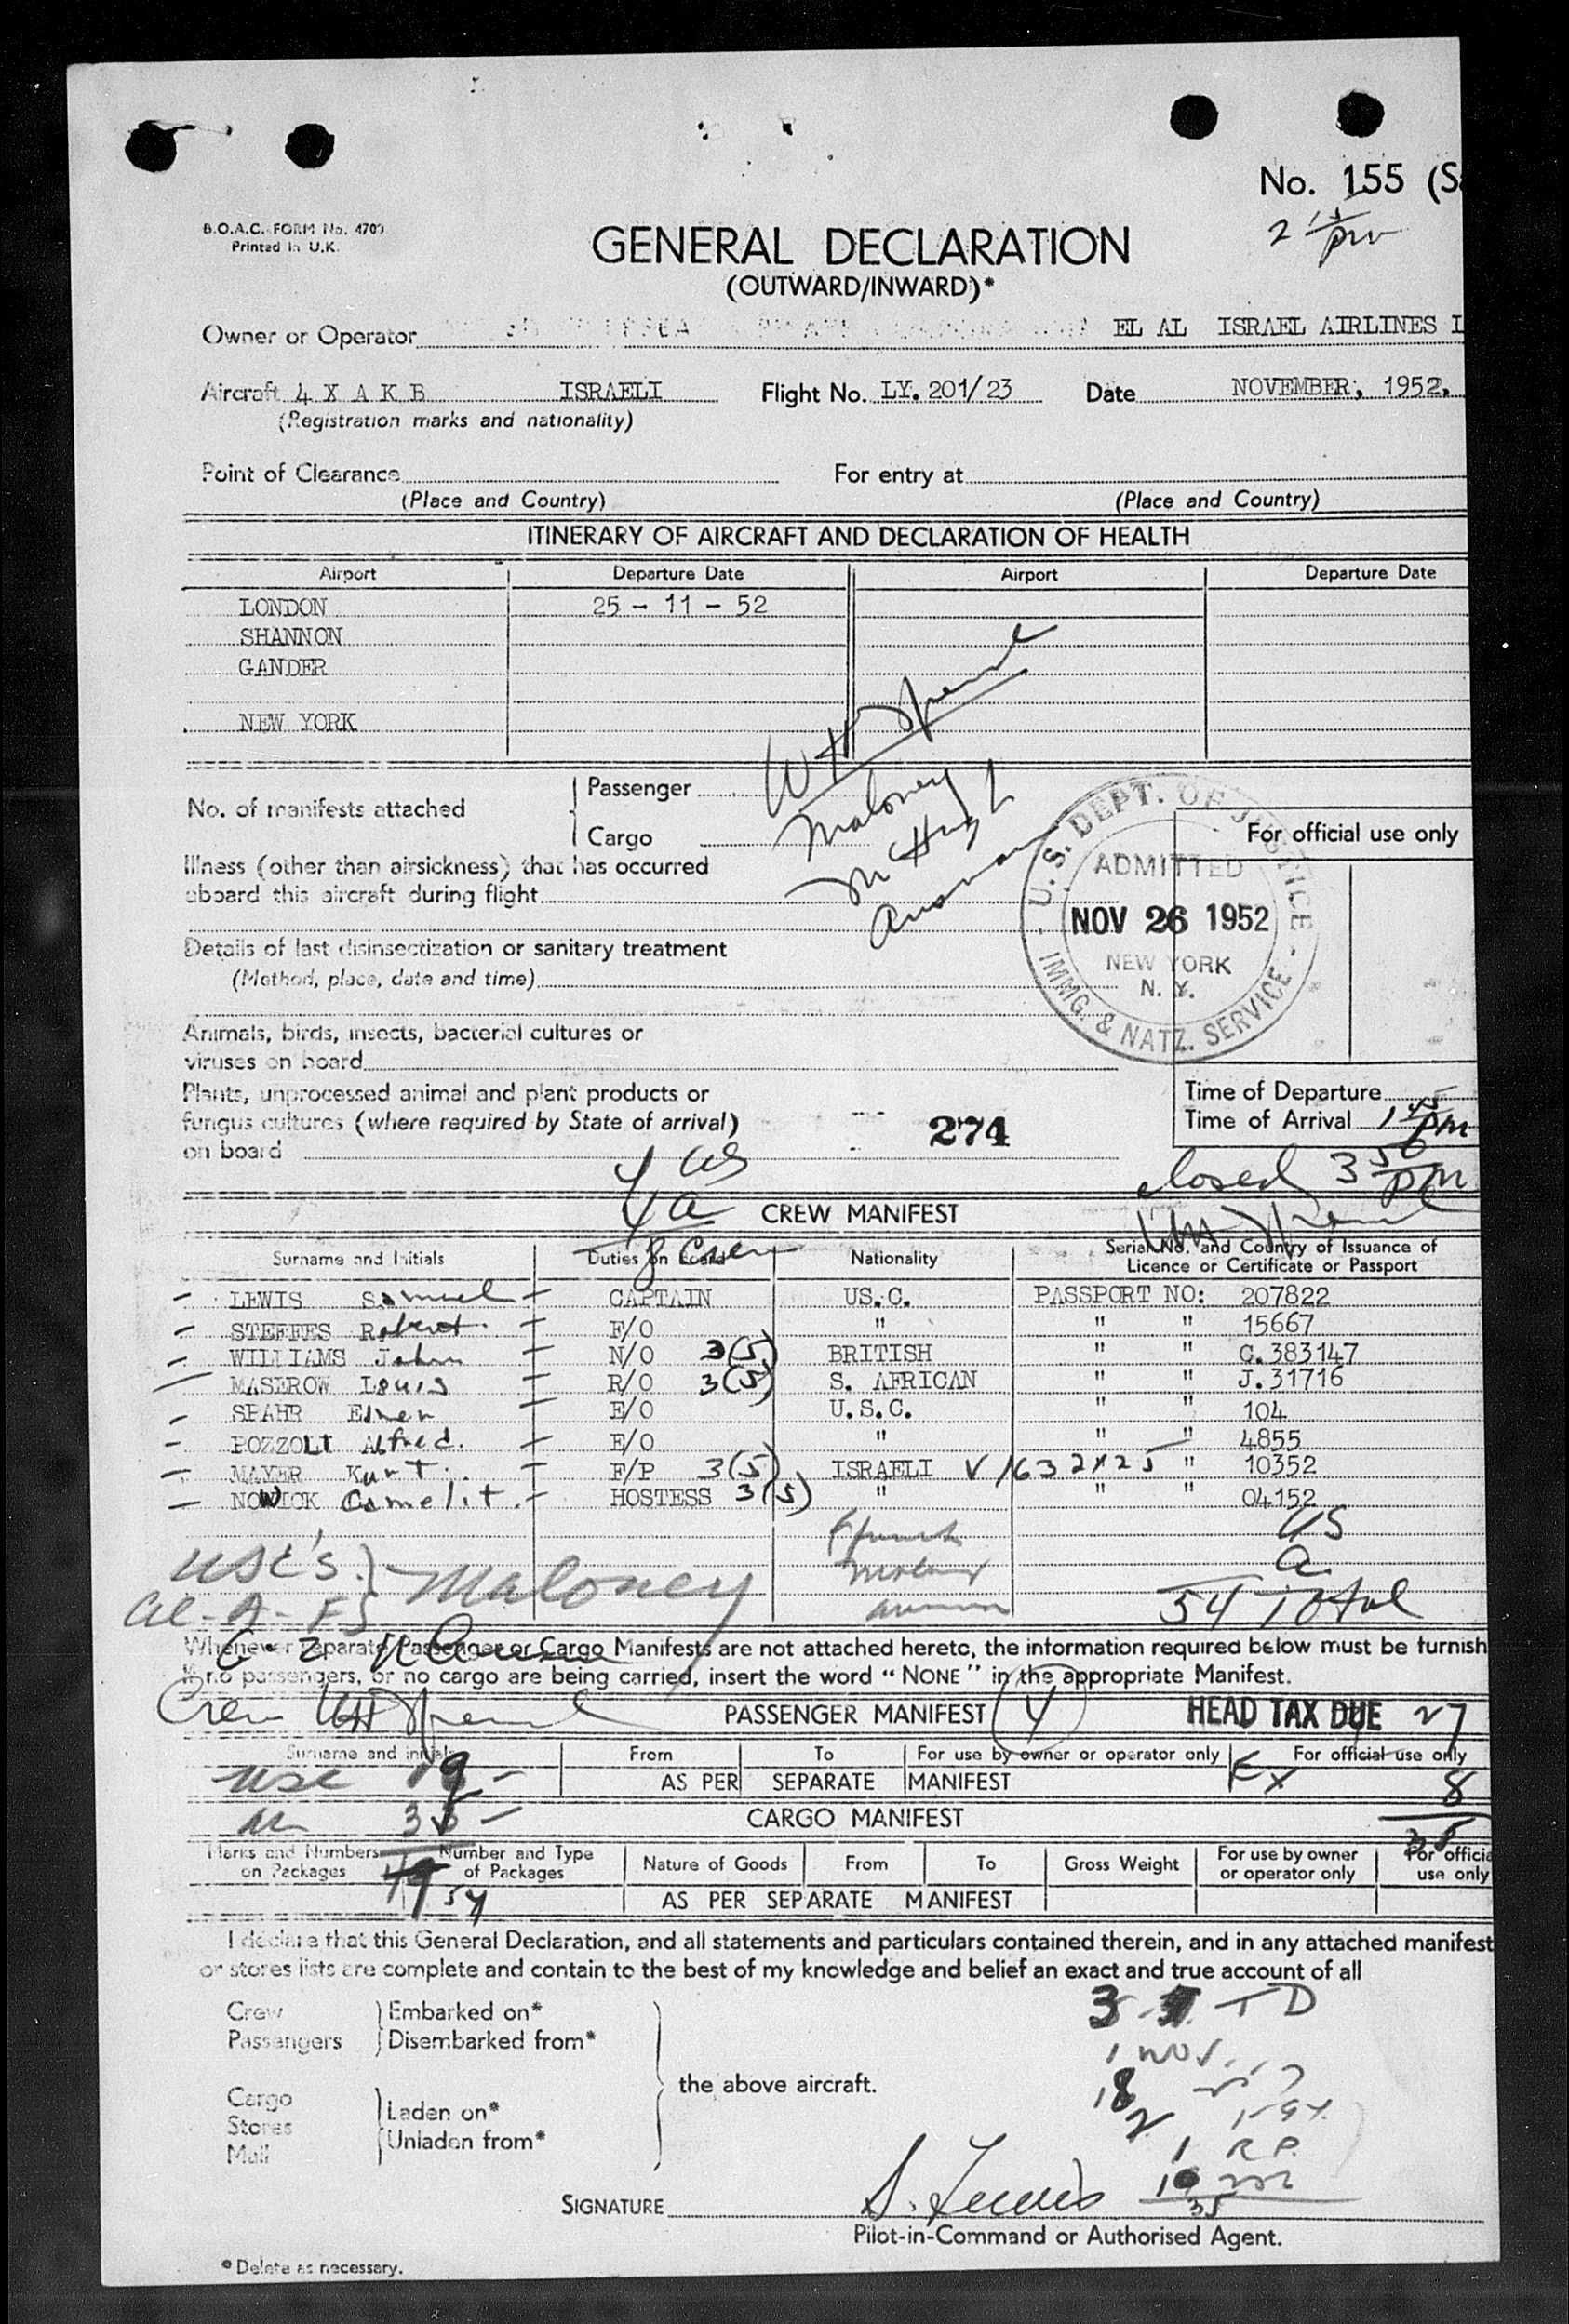 No. 155 (S
2 15 pm
B.O.A.C. FORM No. 4700
Printed in U.K.
GENERAL DECLARATION
(OUTWARD/INWARD)*
Owner or Operator EL AL ISRAEL AIRLINES
Aircraft 4 X A K B ISRAELI Flight No. LY. 201/23 Date NOVEMBER, 1952.
(Registration marks and nationality)
Point of Clearance For entry at
(Place and Country) (Place and Country)
ITINERARY OF AIRCRAFT AND DECLARATION OF HEALTH
Airport Departure Date Airport Departure Date
LONDON 25 - 11 - 52
SHANNON
GANDER
NEW YORK
No. of manifests attached
Passenger
Cargo
Maloney
McHugh
For official use only
Illness (other than airsickness) that has occurred
aboard this aircraft during flight
U.S. DEPT. OF JUSTICE - IMMG. & NATZ. SERVICE -
ADMITTED
NOV 26 1952
NEW YORK
N. Y.
Details of last disinsectization or sanitary treatment
(Method, place, date and time)
Animals, birds, insects, bacterial cultures or
viruses on board
Plants, unprocessed animal and plant products or
fungus cultures (where required by State of arrival)
on board
274
Time of Departure
Time of Arrival 1 45 pm
closed 3 50 pm
4 US
4 a
8 Crew
CREW MANIFEST
Surname and Initials Duties on Board Nationality Serial No. and Country of Issuance of
Licence or Certificate or Passport
LEWIS Samuel CAPTAIN US.C. PASSPORT NO: 207822
STEFFES Robert F/O " " " 15667
WILLIAMS John N/O 3(5) BRITISH " " C.383147
MASEROW Louis R/O 3(5) S. AFRICAN " " J.31716
SPAHR Elmer E/O U.S.C. " " 104
POZZOLI Alfred. E/O " " " 4855
MAYER Kurt F/P 3(5) ISRAELI V 1632725 " 10352
NOWICK Camelit. HOSTESS 3(5) " " " 04152
US
a
54 Total
USC's Maloney
Whenever separate Passenger or Cargo Manifests are not attached hereto, the information required below must be furnish
If no passengers, or no cargo are being carried, insert the word "NONE" in the appropriate Manifest.
Crew
PASSENGER MANIFEST (4) HEAD TAX DUE 27
Surname and initials From To For use by owner or operator only For official use only
AS PER SEPARATE MANIFEST Ex 8
USC 19
CARGO MANIFEST
35
Marks and Numbers on Packages Number and Type of Packages Nature of Goods From To Gross Weight For use by owner or operator only For official use only
54
AS PER SEPARATE MANIFEST
I declare that this General Declaration, and all statements and particulars contained therein, and in any attached manifest
or stores lists are complete and contain to the best of my knowledge and belief an exact and true account of all
Crew
Passengers
Embarked on*
Disembarked from*
Cargo
Stores
Mail
Laden on*
Unladen from*
the above aircraft.
TD
1 R.P.
35
SIGNATURE S. Lewis
Pilot-in-Command or Authorised Agent.
* Delete as necessary.